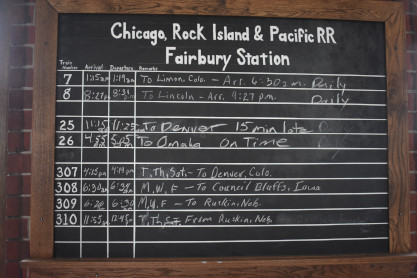 Chicago, Rock Island & Pacific RR
Fairbury Station
Train Number Arrival Departure Remarks
7 1:15am 1:19am To Limon, Colo. - Arr. 6:30a.m. Daily
8 8:27pm 8:31pm To Lincoln - Arr. 9:27 p.m. Daily
25 11:15 11:25 To Denver 15 min late
26 4:55 5:05 To Omaha On Time
307 4:15pm 4:19pm T, Th, Sat. - To Denver, Colo.
308 6:30am M, W, F - To Council Bluffs, Iowa
309 6:20 6:30 M, W, F - To Ruskin, Neb.
310 11:55am 12:45pm T, Th, Sat. From Ruskin, Neb.